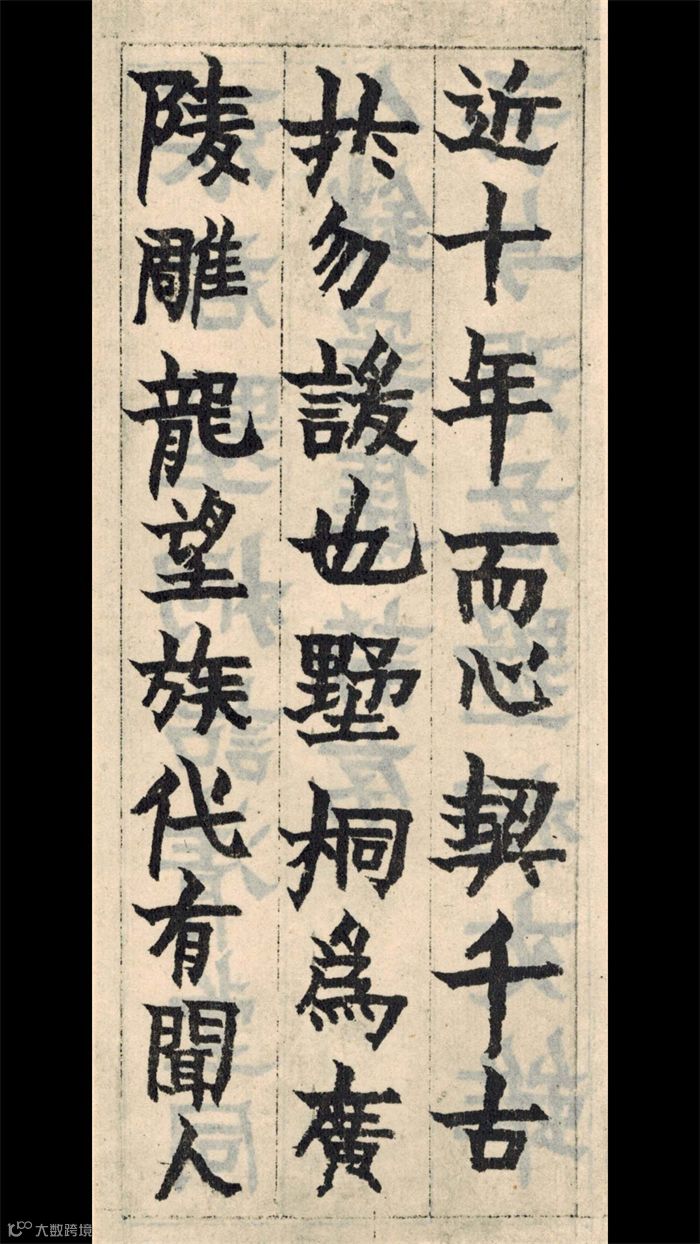 近十年而心契千古
扵勿諼也墅桐爲廣
陵雕龍望族代有聞人
大数跨境